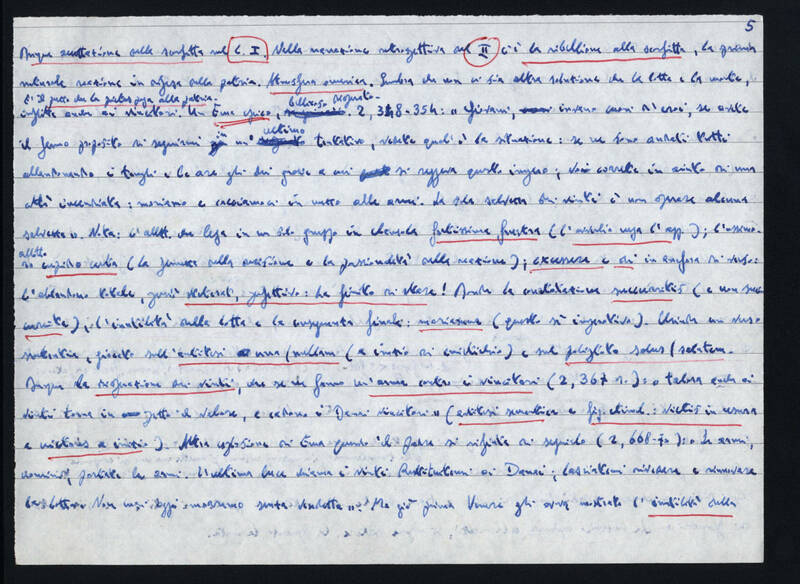 5
Dunque accettazione della sconfitta nel l. I. Nella narrazione retrospettiva del II c'è la ribellione alla sconfitta, la prima
naturale reazione in difesa della patria. Atmosfera omerica. Sembra che non ci sia altra soluzione che la lotta e la morte,
È il padre che la pietas piega alla patria.
inflitta anche ai vincitori. Un Enea epico, bellicoso disperato. 2, 348-354: « Giovani, invano cuori d'eroi, se avete
il fermo proposito di seguirmi in un ultimo tentativo, vedete qual è la situazione: se ne sono andati tutti
abbandonando i templi e le are gli dei grazie a cui si reggeva questo impero; voi correte in aiuto di una
città incendiata: moriamo e cacciamoci in mezzo alle armi. La sola salvezza dei vinti è non sperare alcuna
salvezza ». Nota: l'allitt. che lega in un solo gruppo in clausola fortissima frustra ( l'avverbio nega l'agg.); l'assonanza
allitt.
cupido certa (la fermezza della decisione e la passionalità della reazione); excessere e di in anafora di verso:
l'abbandono totale, gravi, effettivo: la fine di Ilio! Anche la constatazione succurritis (e non succurrite
), l'inutilità della lotta e la conseguenza finale: moriamur (questo sì imperativo). Chiude un verso
giocato sull'antitesi una/nullam (a inizio di emistichio) e sul poliptoto salus/salutem.
Dunque la disperazione dei vinti, che se ne fanno un'arma contro i vincitori (2, 367 s.): « talora anche ai
vinti torna in petto il valore, e cadono i Danai vincitori » (antitesi semantica e fig. etimol.: victis in cesura
e victores a inizio). Altra esplosione di Enea quando il padre si rifiuta di seguirlo (2, 668-70): « Le armi,
uomini, portate le armi. L'ultima luce chiama i vinti. Restituitemi ai Danai; lasciatemi rivedere e rinnovare
la lotta. Non tutti oggi moriremo senza vendetta ». Ma già prima Venere gli aveva mostrato l'inutilità della